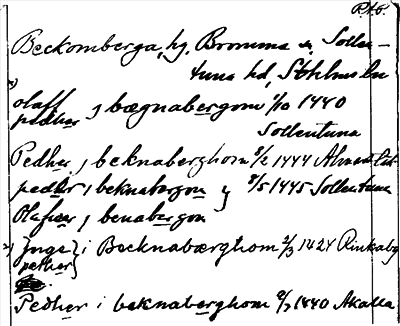 P.t.o.
Beckomberga, hg. Bromma s., Sollen-
tuna hd, Sthlms län
olaff
pedher j bægnabergom 1/10 1440
Sollentuna
Pedher j beknaberghom 8/2 1444
peder j beknabergom 2/5 1445 Sollentuna
Olafuer j benabergom
Inge
pether } i Becknabærghom 2/3 1424 Rinkaby
Pedher i beknaberghom 1440 Akalla